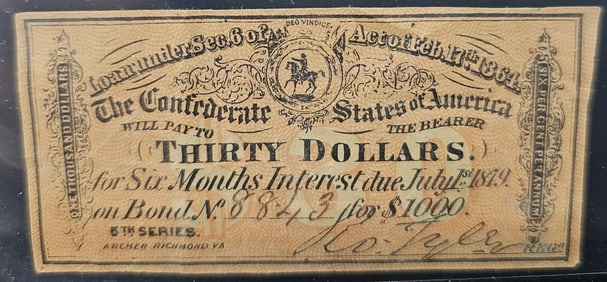 DEO VINDICE
Loan under Sec. 6 of Act of Feb. 17th 1864.
The Confederate States of America
WILL PAY TO THE BEARER
THIRTY DOLLARS.
for Six Months Interest due July 1st 1879.
on Bond No. 8843 for $1000.
5TH SERIES.
ARCHER RICHMOND VA
Ro. Tyler REGR.
ONE THOUSAND DOLLARS
SIX PER CENT PER ANNUM